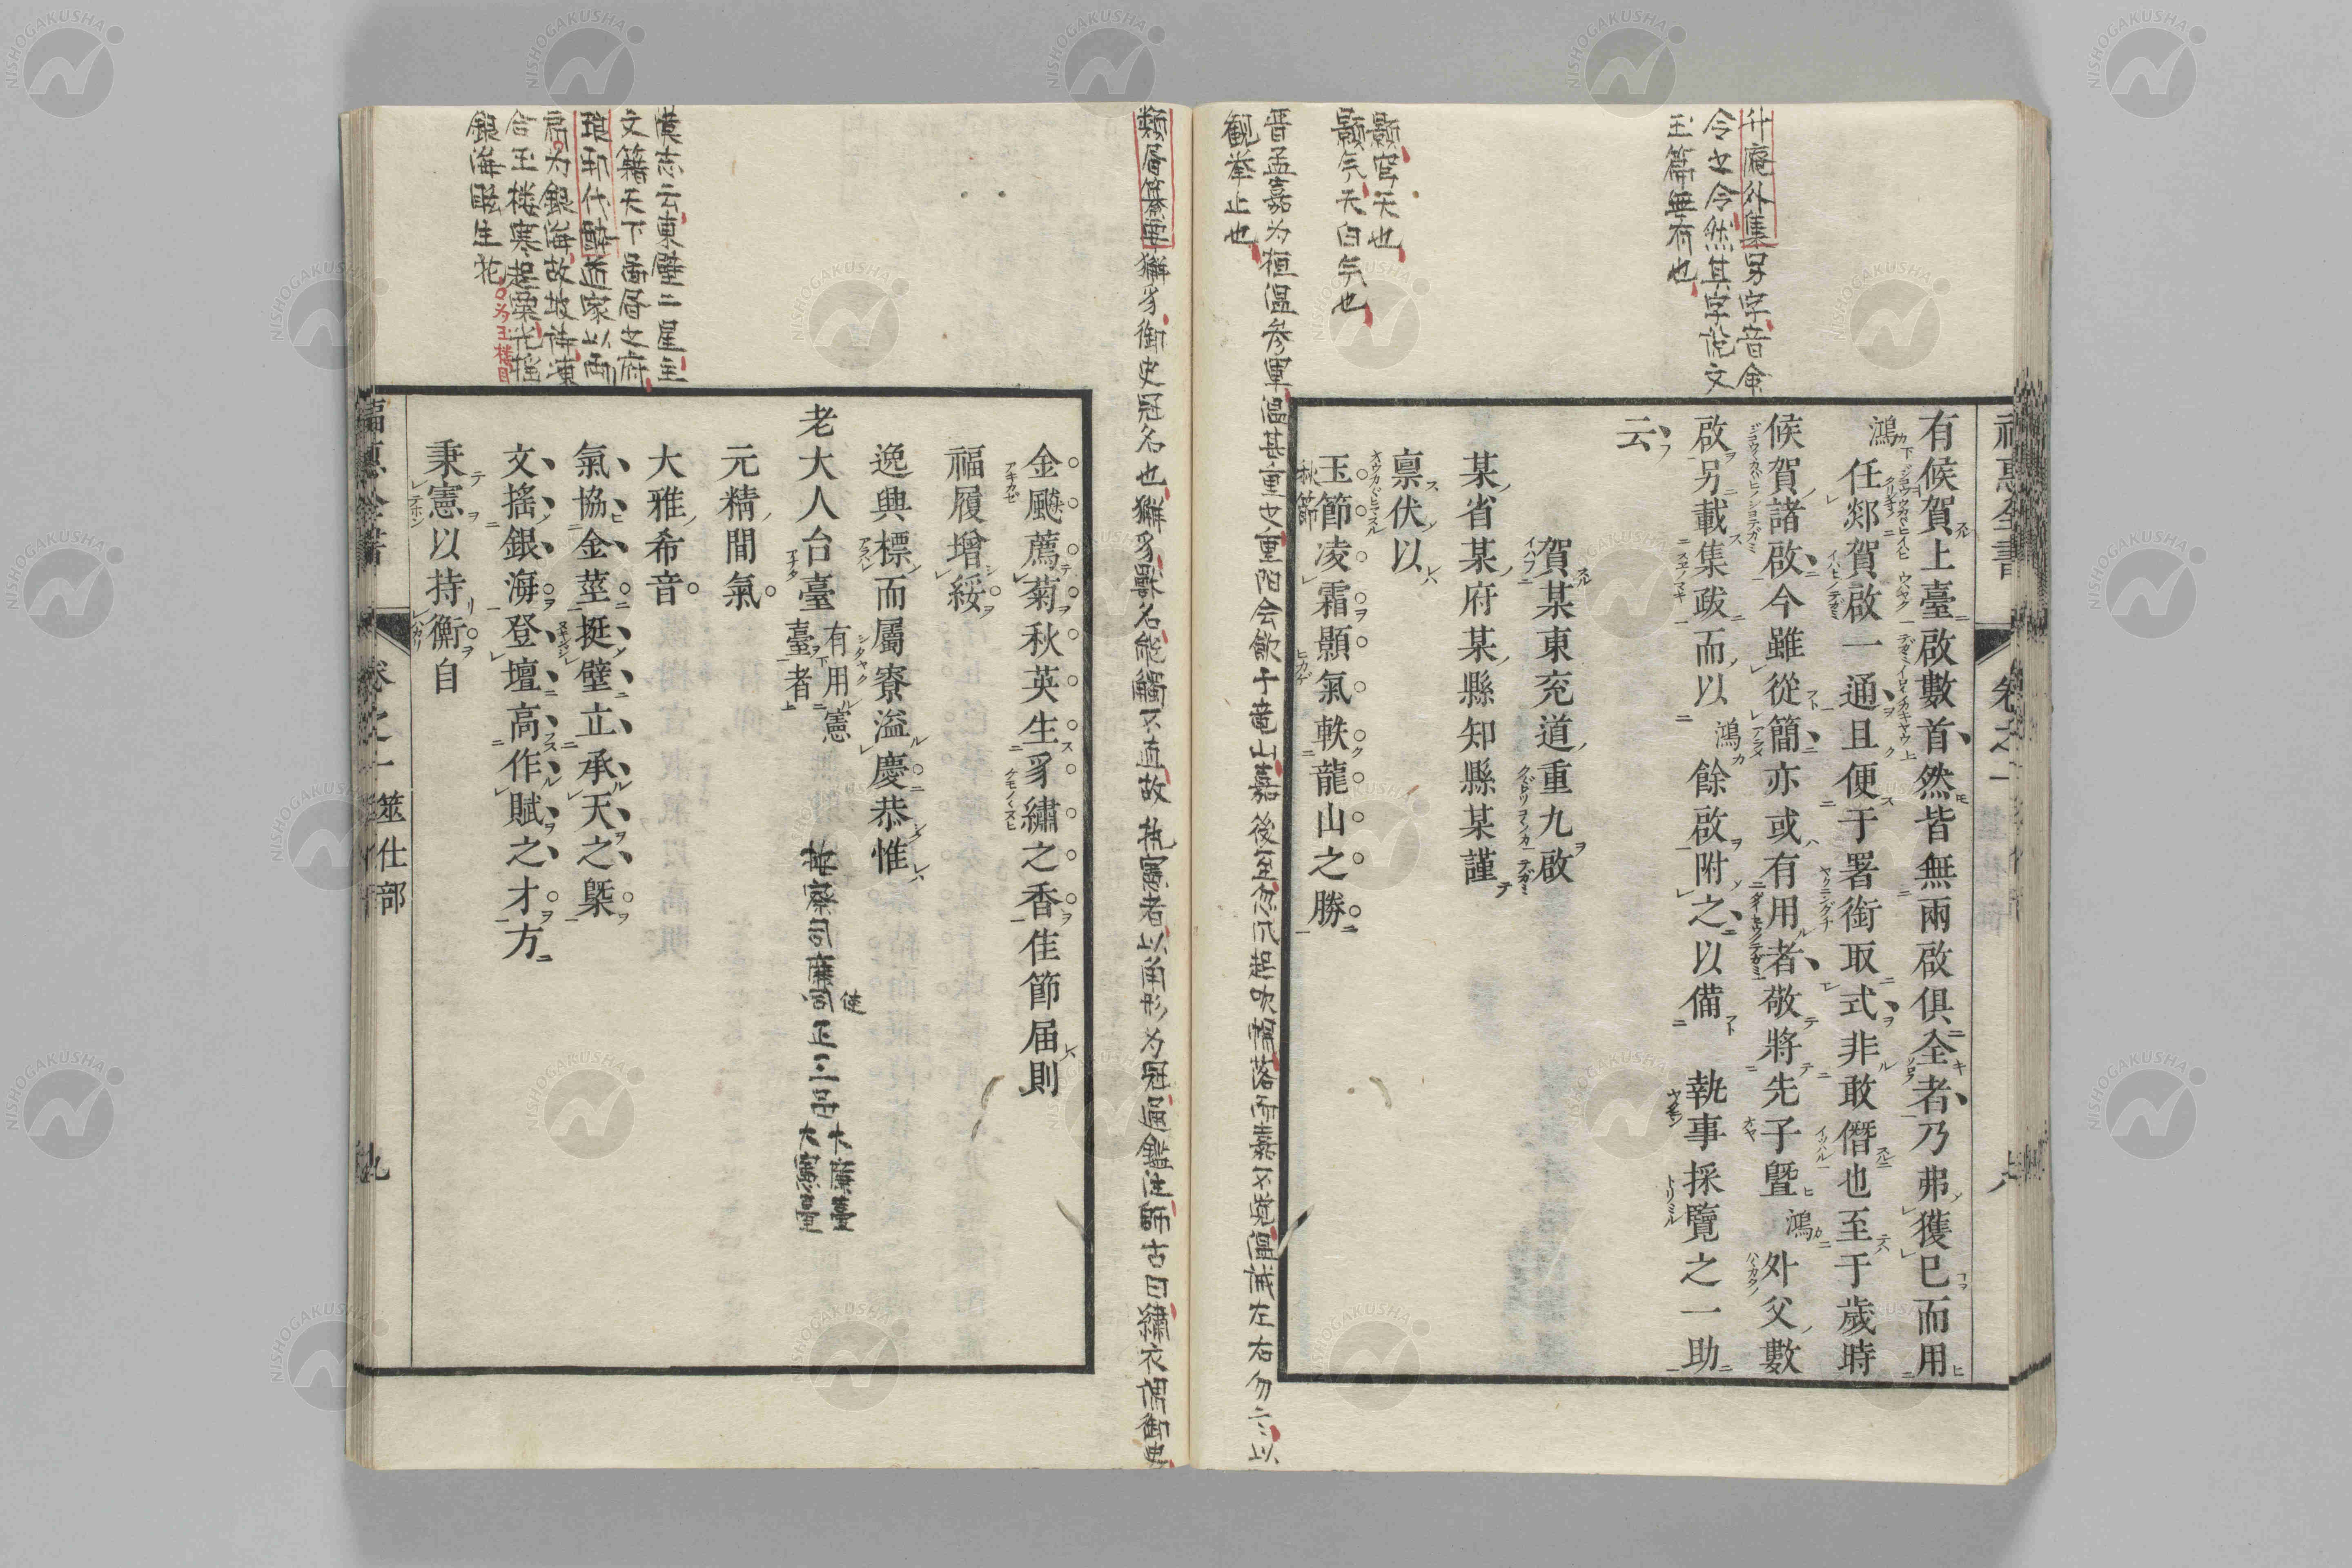 福惠全書
卷之一
有候賀上臺啟數首然皆無兩啟俱全者乃弗獲已而用
鴻任郯賀啟一通且便于署銜取式非敢僭也至于歲時
候賀諸啟今雖從簡亦或有用者敬將先子暨鴻外父數
啟另載集跋而以鴻餘啟附之以備執事採覽之一助
云
賀某東兖道重九啟
某省某府某縣知縣某謹
稟伏以
玉節凌霜顥氣軼龍山之勝
升庵外集另字音命
令也令然其字說文
玉篇無有也
顥穹天也
顥气天白气也
晋孟嘉为桓温参軍温甚重也重阳会飲于竜山嘉後至忽风起吹帽落而嘉不覚温诫左右勿言以
観挙止也
金飈薦菊秋英生豸繡之香佳節届則
福履增綏
逸興標而屬寮溢慶恭惟
老大人台臺有用憲臺者
元精間氣
大雅希音
氣協金莖挺壁立承天之槩
文搖銀海登壇高作賦之才方
秉憲以持衡自
福惠全書
卷之一
筮仕部
九
獬豸御史冠名也獬豸獸名能觸不直故执憲者以角形为冠通鑑注師古曰繡衣倜御史
漢志云東壁二星主
文籍天下圖書之府
琅邪代醉道家以両
肩为銀海故坡诗凍
合玉楼寒起粟光摇
銀海眩生花
为玉楼目
按察司廉司正三品
使
大廉臺
大憲臺